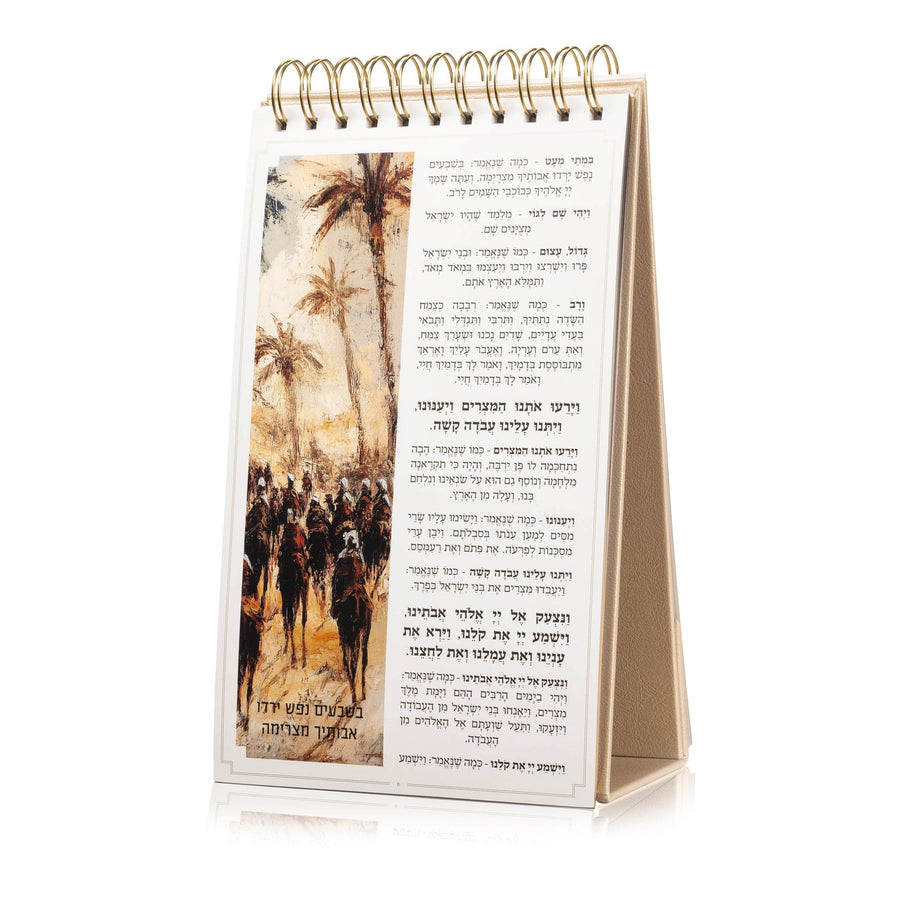 בִּמְתֵי מְעָט - כְּמָה שֶׁנֶּאֱמַר: בְּשִׁבְעִים
נֶפֶשׁ יָרְדוּ אֲבוֹתֶיךָ מִצְרָיְמָה, וְעַתָּה שָׂמְךָ
יְיָ אֱלֹהֶיךָ כְּכוֹכְבֵי הַשָּׁמַיִם לָרֹב.
וַיְהִי שָׁם לְגוֹי - מְלַמֵּד שֶׁהָיוּ יִשְׂרָאֵל
מְצֻיָּנִים שָׁם.
גָּדוֹל, עָצוּם - כְּמוֹ שֶׁנֶּאֱמַר: וּבְנֵי יִשְׂרָאֵל
פָּרוּ וַיִּשְׁרְצוּ וַיִּרְבּוּ וַיַּעַצְמוּ בִּמְאֹד מְאֹד,
וַתִּמָּלֵא הָאָרֶץ אֹתָם.
וָרָב - כְּמָה שֶׁנֶּאֱמַר: רְבָבָה כְּצֶמַח
הַשָּׂדֶה נְתַתִּיךְ, וַתִּרְבִּי וַתִּגְדְּלִי וַתָּבֹאִי
בַּעֲדִי עֲדָיִים, שָׁדַיִם נָכֹנוּ וּשְׂעָרֵךְ צִמֵּחַ,
וְאַתְּ עֵרֹם וְעֶרְיָה. וָאֶעֱבֹר עָלַיִךְ וָאֶרְאֵךְ
מִתְבּוֹסֶסֶת בְּדָמָיִךְ, וָאֹמַר לָךְ בְּדָמַיִךְ חֲיִי,
וָאֹמַר לָךְ בְּדָמַיִךְ חֲיִי.
וַיָּרֵעוּ אֹתָנוּ הַמִּצְרִים וַיְעַנּוּנוּ,
וַיִּתְּנוּ עָלֵינוּ עֲבֹדָה קָשָׁה.
וַיָּרֵעוּ אֹתָנוּ הַמִּצְרִים - כְּמוֹ שֶׁנֶּאֱמַר: הָבָה
נִתְחַכְּמָה לוֹ פֶּן יִרְבֶּה, וְהָיָה כִּי תִקְרֶאנָה
מִלְחָמָה וְנוֹסַף גַּם הוּא עַל שֹׂנְאֵינוּ וְנִלְחַם
בָּנוּ, וְעָלָה מִן הָאָרֶץ.
וַיְעַנּוּנוּ - כְּמָה שֶׁנֶּאֱמַר: וַיָּשִׂימוּ עָלָיו שָׂרֵי
מִסִּים לְמַעַן עַנֹּתוֹ בְּסִבְלֹתָם. וַיִּבֶן עָרֵי
מִסְכְּנוֹת לְפַרְעֹה. אֶת פִּתֹם וְאֶת רַעַמְסֵס.
וַיִּתְּנוּ עָלֵינוּ עֲבֹדָה קָשָׁה - כְּמָה שֶׁנֶּאֱמַר:
וַיַּעֲבִדוּ מִצְרַיִם אֶת בְּנֵי יִשְׂרָאֵל בְּפָרֶךְ.
וַנִּצְעַק אֶל יְיָ אֱלֹהֵי אֲבֹתֵינוּ,
וַיִּשְׁמַע יְיָ אֶת קֹלֵנוּ, וַיַּרְא אֶת
עָנְיֵנוּ וְאֶת עֲמָלֵנוּ וְאֶת לַחֲצֵנוּ.
וַנִּצְעַק אֶל יְיָ אֱלֹהֵי אֲבֹתֵינוּ - כְּמָה שֶׁנֶּאֱמַר:
וַיְהִי בַיָּמִים הָרַבִּים הָהֵם וַיָּמָת מֶלֶךְ
מִצְרַיִם, וַיֵּאָנְחוּ בְנֵי יִשְׂרָאֵל מִן הָעֲבוֹדָה
וַיִּזְעָקוּ, וַתַּעַל שַׁוְעָתָם אֶל הָאֱלֹהִים מִן
הָעֲבֹדָה.
וַיִּשְׁמַע יְיָ אֶת קֹלֵנוּ - כְּמָה שֶׁנֶּאֱמַר: וַיִּשְׁמַע
בשבעים נפש ירדו
אבותיך מצרימה